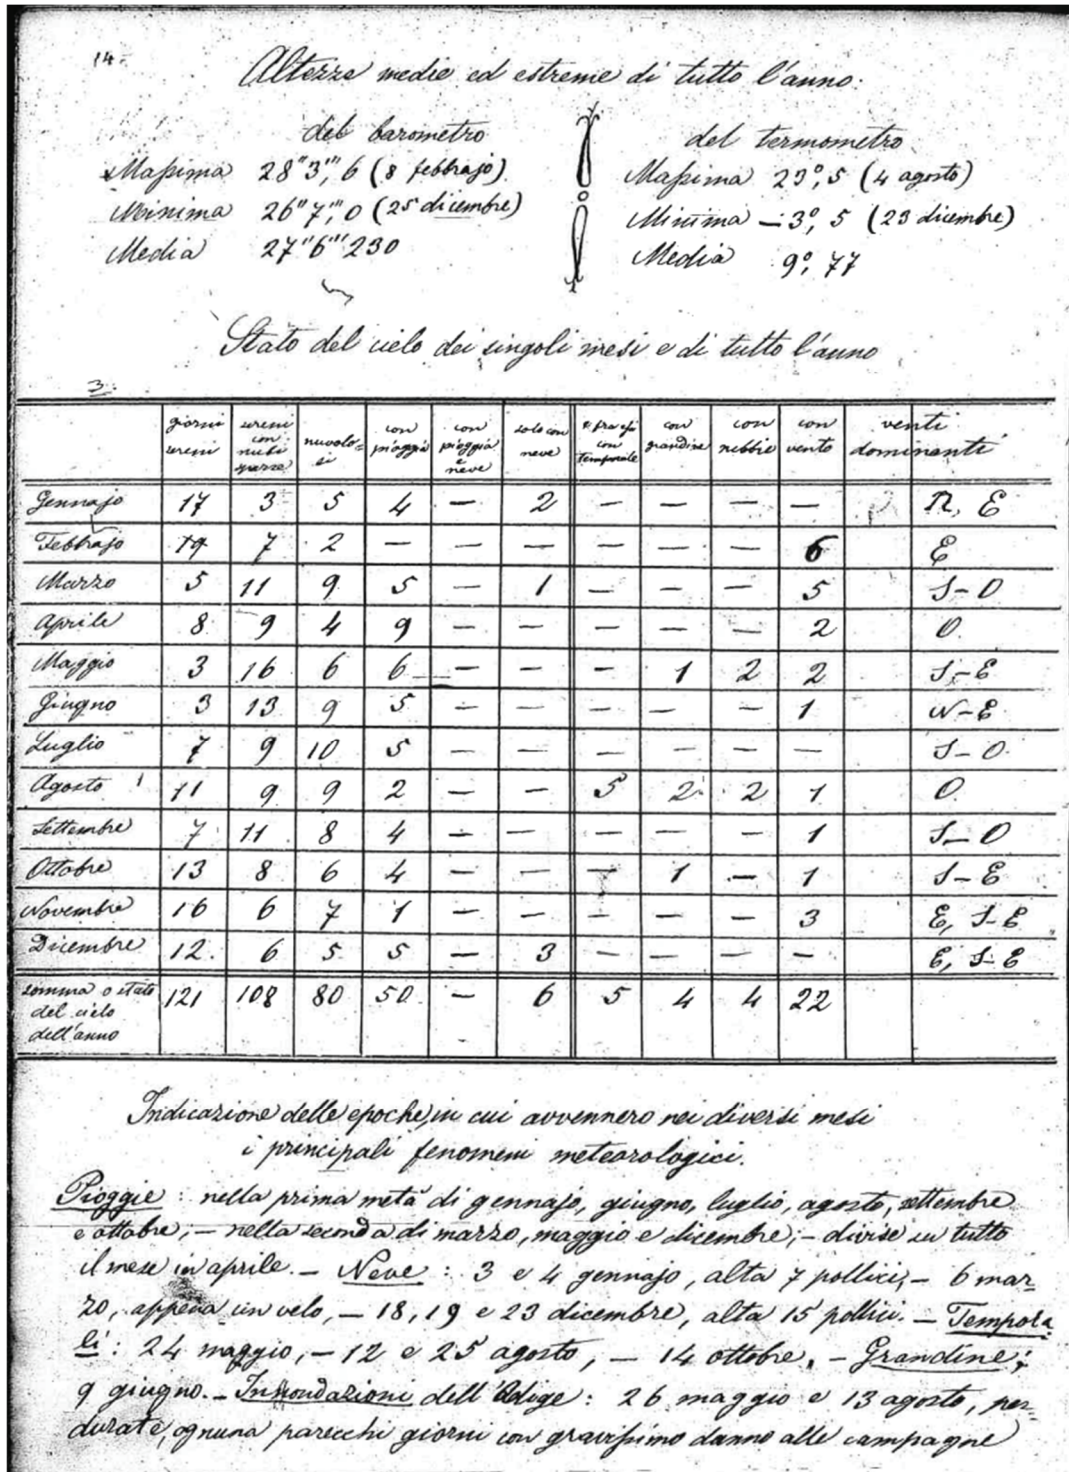 14.
Altezze medie ed estreme di tutto l'anno.
del barometro
Massima 28"3"', 6 (8 febbrajo).
Minima 26"7"', 0 (25 dicembre)
Media 27"6"' 230
del termometro
Massima 23°, 5 (4 agosto)
Minima – 3°, 5 (23 dicembre)
Media 9°, 77
Stato del cielo dei singoli mesi e di tutto l'anno
3.
giorni sereni | sereni con nubi sparse | nuvolosi | con pioggia | con pioggia e neve | solo con neve | con temporale | con grandine | con nebbie | con vento | venti dominanti
Gennajo 17 3 5 4 — 2 — — — — N, E
Febbrajo 19 7 2 — — — — — — 6 E
Marzo 5 11 9 5 — 1 — — — 5 S–O
Aprile 8 9 4 9 — — — — — 2 O.
Maggio 3 16 6 6 — — — 1 2 2 S–E
Giugno 3 13 9 5 — — — — — 1 N–E
Luglio 7 9 10 5 — — — — — — S–O
Agosto 11 9 9 2 — — 5 2 2 1 O.
Settembre 7 11 8 4 — — — — — 1 S–O
Ottobre 13 8 6 4 — — — 1 — 1 S–E
Novembre 16 6 7 1 — — — — — 3 E, S–E
Dicembre 12. 6 5 5 — 3 — — — — E, S–E
somma o stato del cielo dell'anno 121 108 80 50 — 6 5 4 4 22
Indicazione delle epoche, in cui avvennero nei diversi mesi
i principali fenomeni meteorologici.
Pioggie : nella prima metà di gennajo, giugno, luglio, agosto, settembre
e ottobre; – nella seconda di marzo, maggio e dicembre; – divise su tutto
il mese in aprile. – Neve : 3 e 4 gennajo, alta 7 pollici; – 6 mar=
zo, appena un velo, – 18, 19 e 23 dicembre, alta 15 pollici. – Tempora=
li : 24 maggio, – 12 e 25 agosto, – 14 ottobre. – Grandine :
9 giugno. – Innondazioni dell'Adige : 26 maggio e 13 agosto, per=
durate, ognuna parecchi giorni con gravissimo danno alle campagne